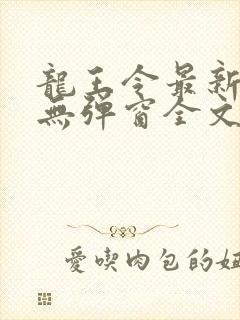 龍王令最新
無彈窗全文
愛喫肉包的